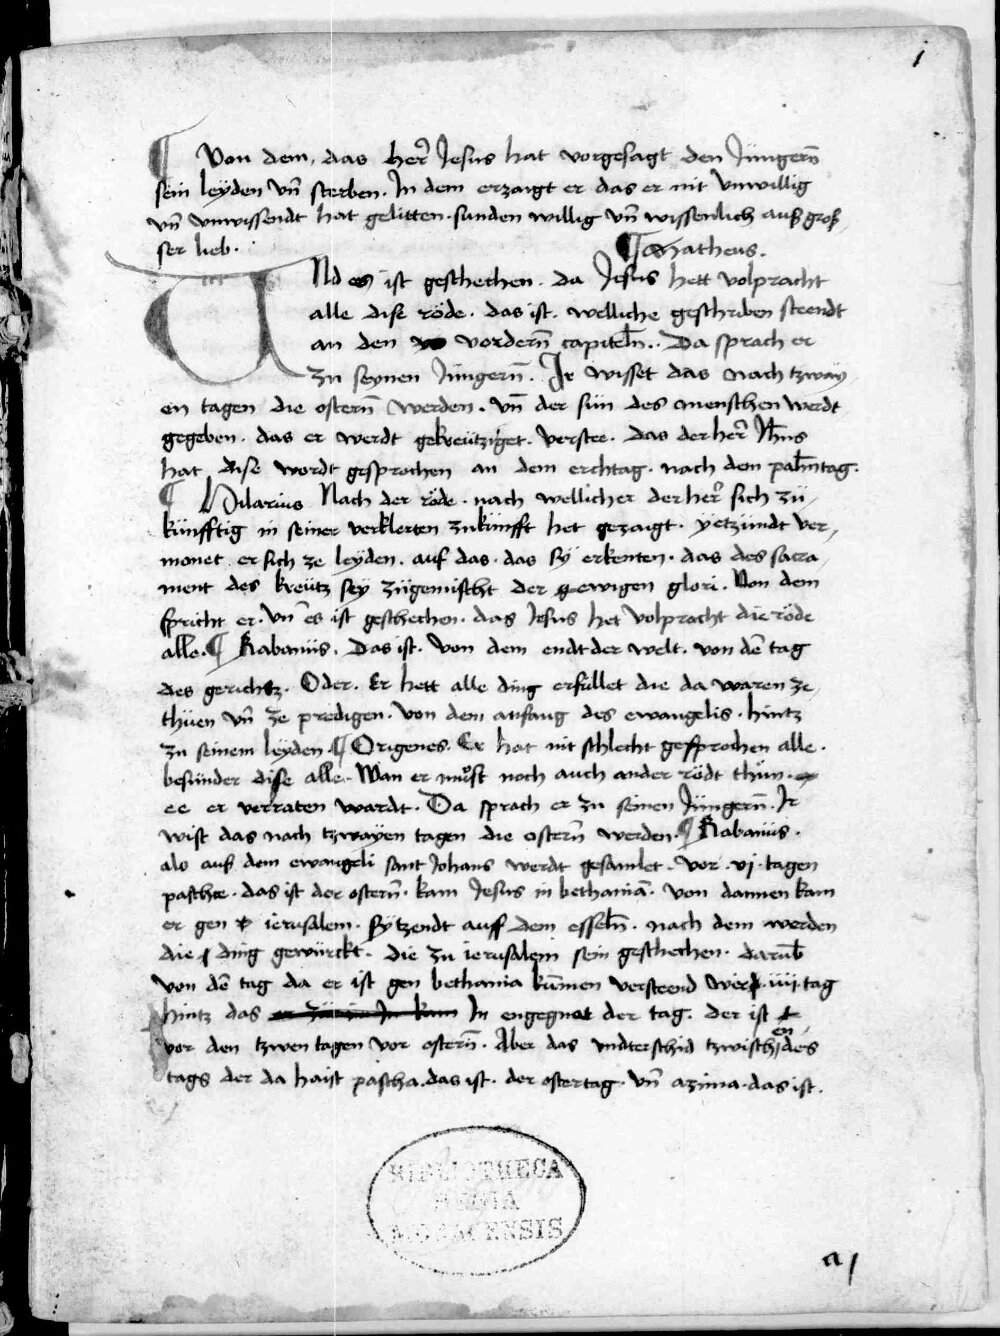 1
¶ Von dem, das her̃ Jesus hat vorgesagt den Jüngern̄
sein leÿden vn̄ sterben. In dem erzaigt er das er nit vnwillig
vn̄ vnwissendt hat gelitten. sunden willig vn̄ wissenlich auß groß
ser lieb. ¶ Matheus.
VNd es ist geschechen. da Jesus hett volpracht
alle dise röde. das ist. welliche geschriben steendt
an den vordern̄ capiteln̄. Da sprach er
zu seynen Jüngern̄. Ir wisset das nach tzway
en tagen die ostern̄ werden. vn̄ der sün des menschen werdt
gegeben. das er werdt gekreütziget. verstee. das der her̃ Jh̄us
hat dise wordt gesprochen an dem erchtag. nach dem palm̄tag.
¶ Hilarius Nach der röde. nach wellicher der her̃ sich zü
künfftig in seiner verklerten zukünfft het gezaigt. ÿetzündt ver,
monet er sich ze leyden. auf das. das sÿ erkenten. das des sacra
ment des kreütz seÿ zügemischt der ewigen glori. Von dem
spricht er. vn̄ es ist geschechen. das Jesus het volpracht die röde
alle. ¶ Rabanüs. Das ist. von dem endt der welt. von dē tag
des gerichtz. Oder. Er hett alle ding erfüllet die da waren ze
thüen vn̄ ze predigen. von dem anfang des ewangelis. hintz
zu seinem leÿden ¶ Origenes. Er hat nit schlecht gesprochen alle.
besünder dise alle. Wan er muͦst noch auch ander rödt thün.
ee er verraten wardt. Da sprach er zu seinen Jüngern̄. Ir
wist das nach tzwayen tagen die ostern̄ werden. ¶ Rabanüs.
als auß dem ewangeli sant Johans werdt gesamlet. vor. vj. tagen
pasche. das ist der ostern̄. kam Jesus in bethania. von dannen kam
er gen ierusalem. sÿtzendt auff dem esseln̄. nach dem werden
die ding gewürckt. die zu ierusalem sein geschechen. darūb
von dē tag da er ist gen bethania kum̄en versteend wir. iiii. tag
hintz das In engegnet der tag. der ist
vor den tzwen tagen vor ostern̄. Aber das vndterschid tzwischen des
tags der da haist pascha. das ist. der ostertag. vn̄ azima. das ist.
BIBLIOTHECA
REGIA
MONACENSIS
a j